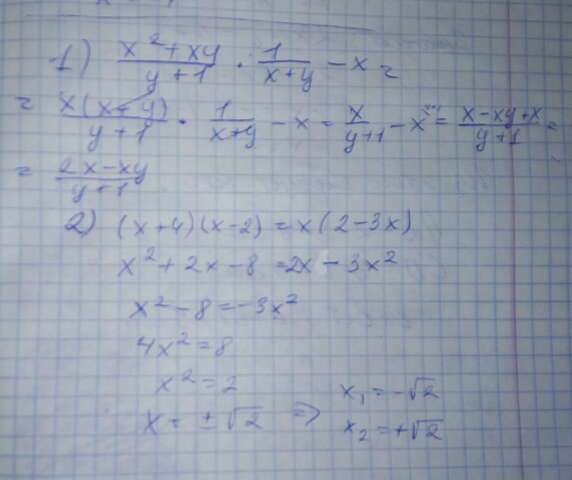 1) (x² + xy)/(y + 1) · 1/(x + y) − x =
= x(x + y)/(y + 1) · 1/(x + y) − x = x/(y + 1) − x = (x − xy + x)/(y + 1) =
= (2x − xy)/(y + 1)
2) (x + 4)(x − 2) = x(2 − 3x)
x² + 2x − 8 = 2x − 3x²
x² − 8 = −3x²
4x² = 8
x² = 2
x = ±√2 ⇒ x₁ = −√2
x₂ = +√2